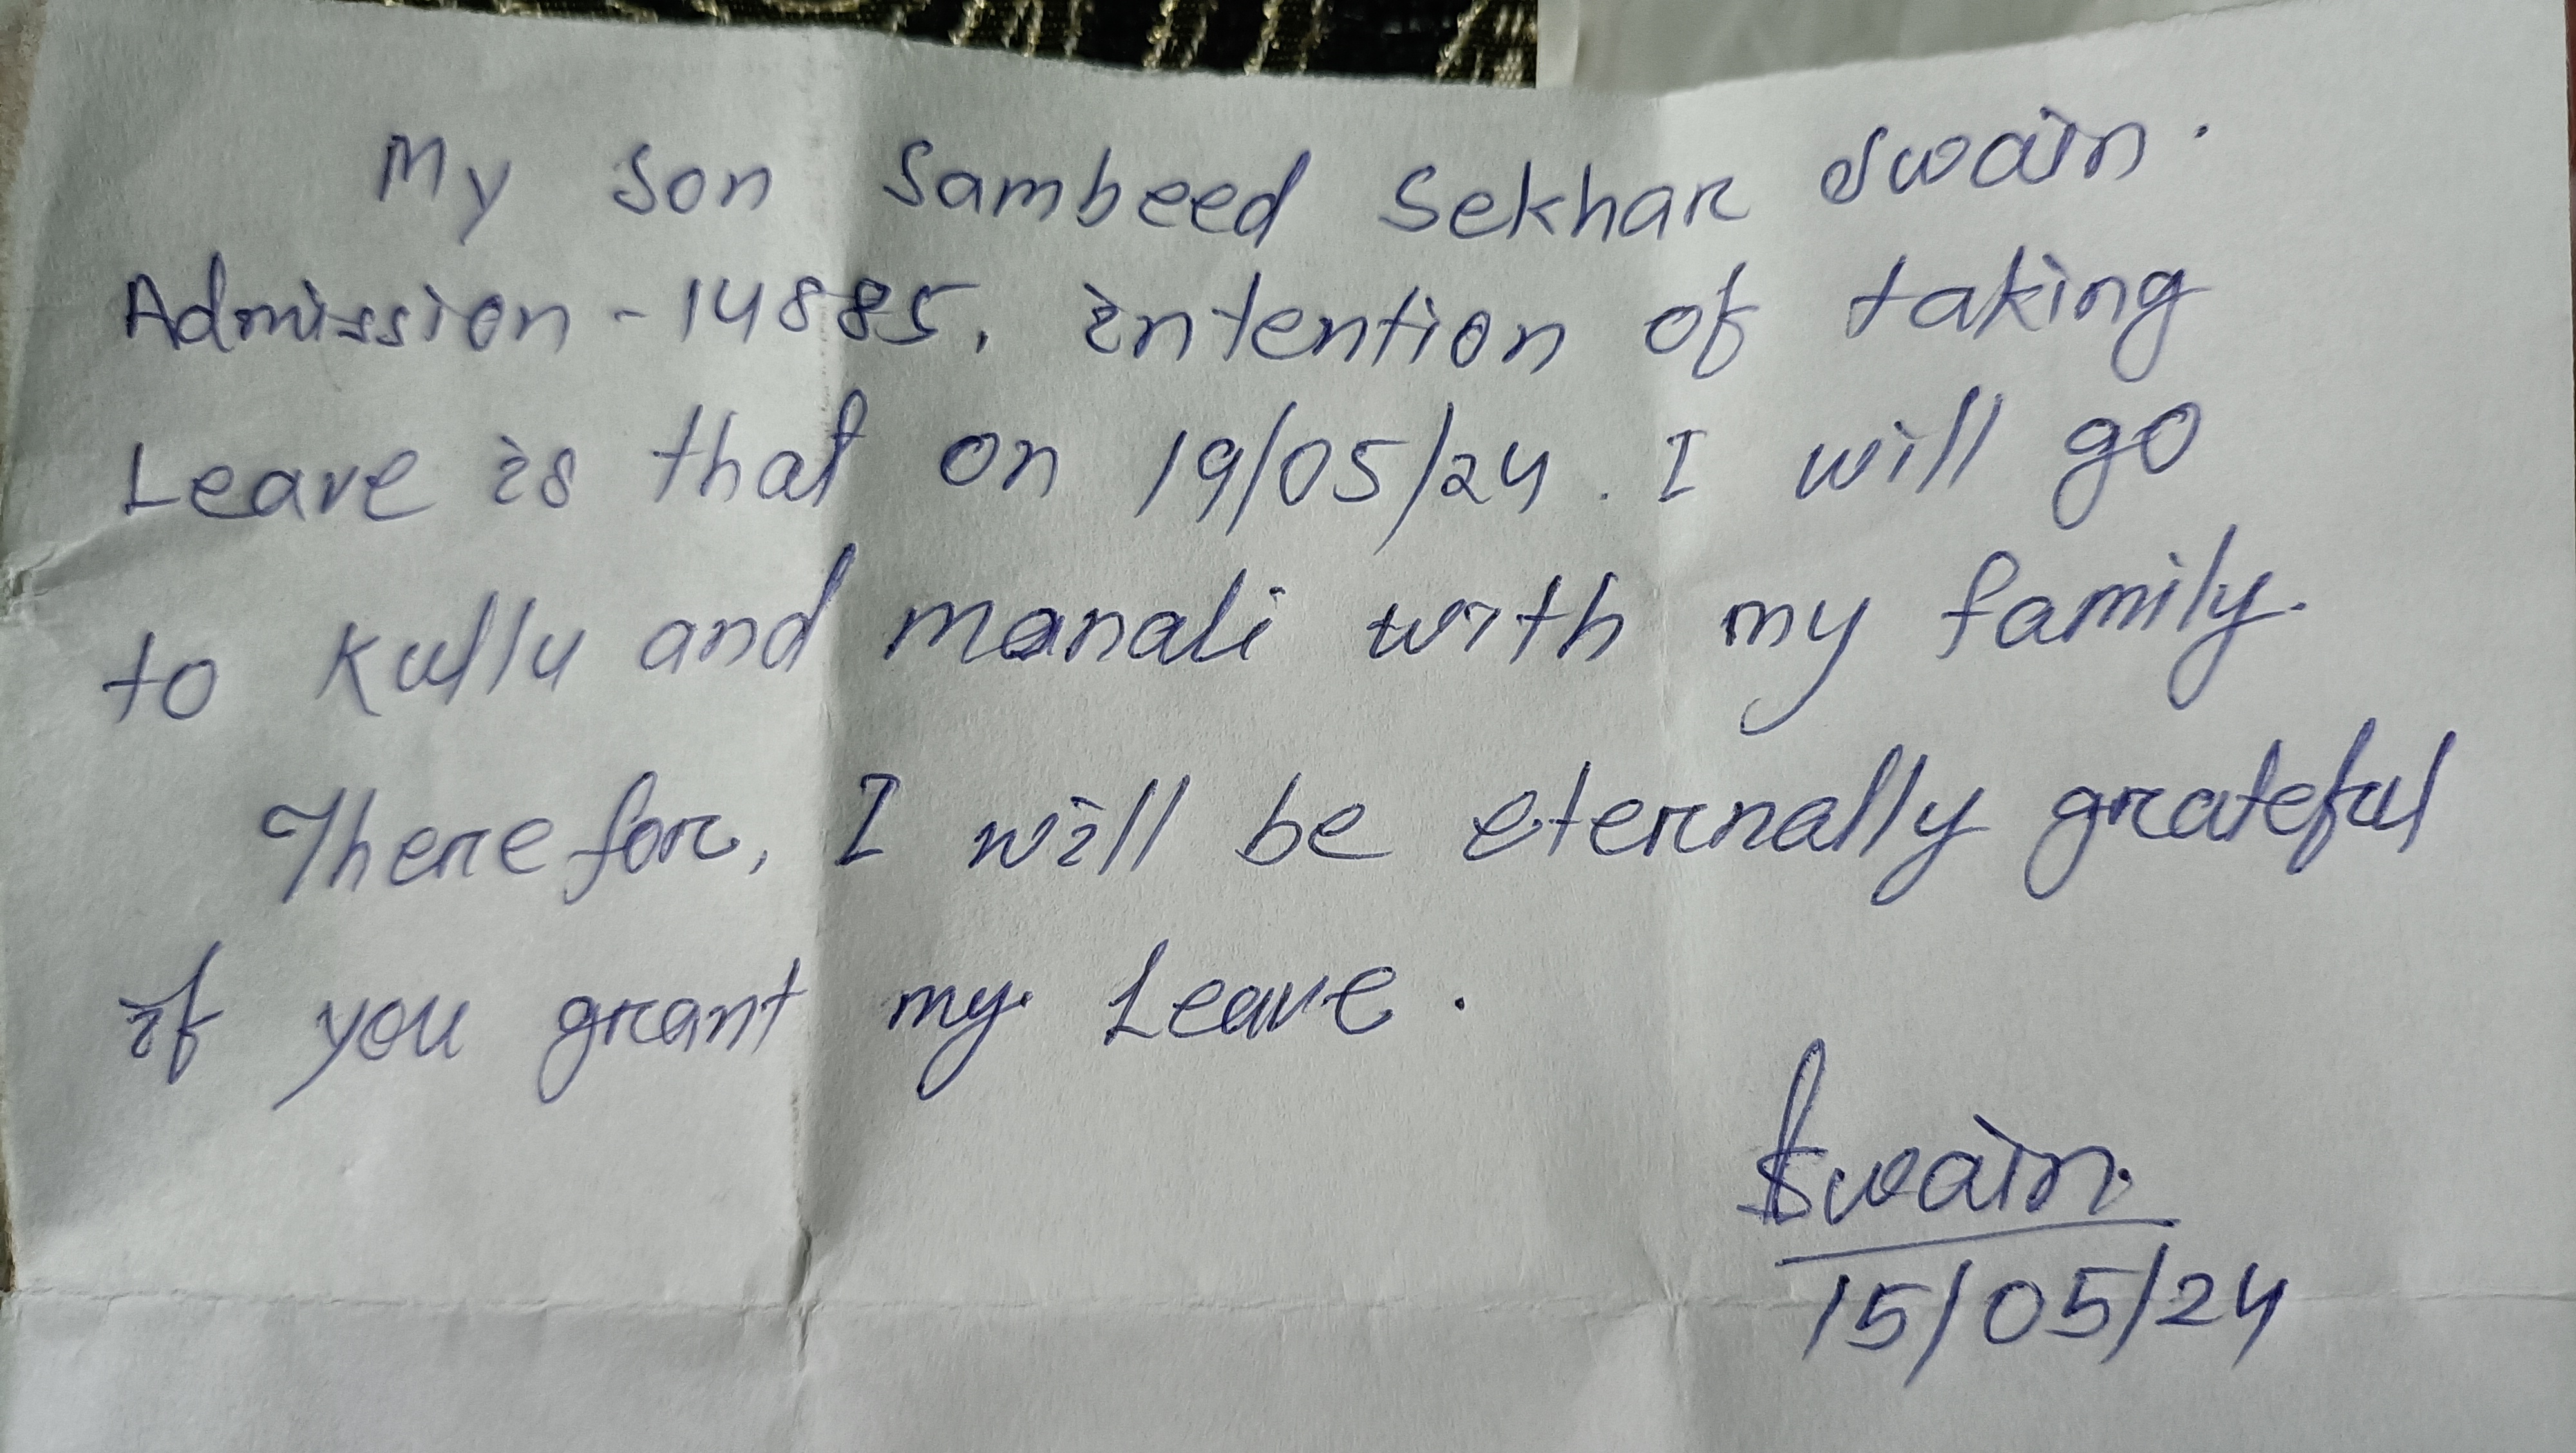 My son Sambeed Sekhar Swain.
Admission - 14885, intention of taking
Leave is that on 19/05/24. I will go
to Kullu and manali with my family.
Therefor, I will be eternally grateful
if you grant my Leave.
Swain.
15/05/24